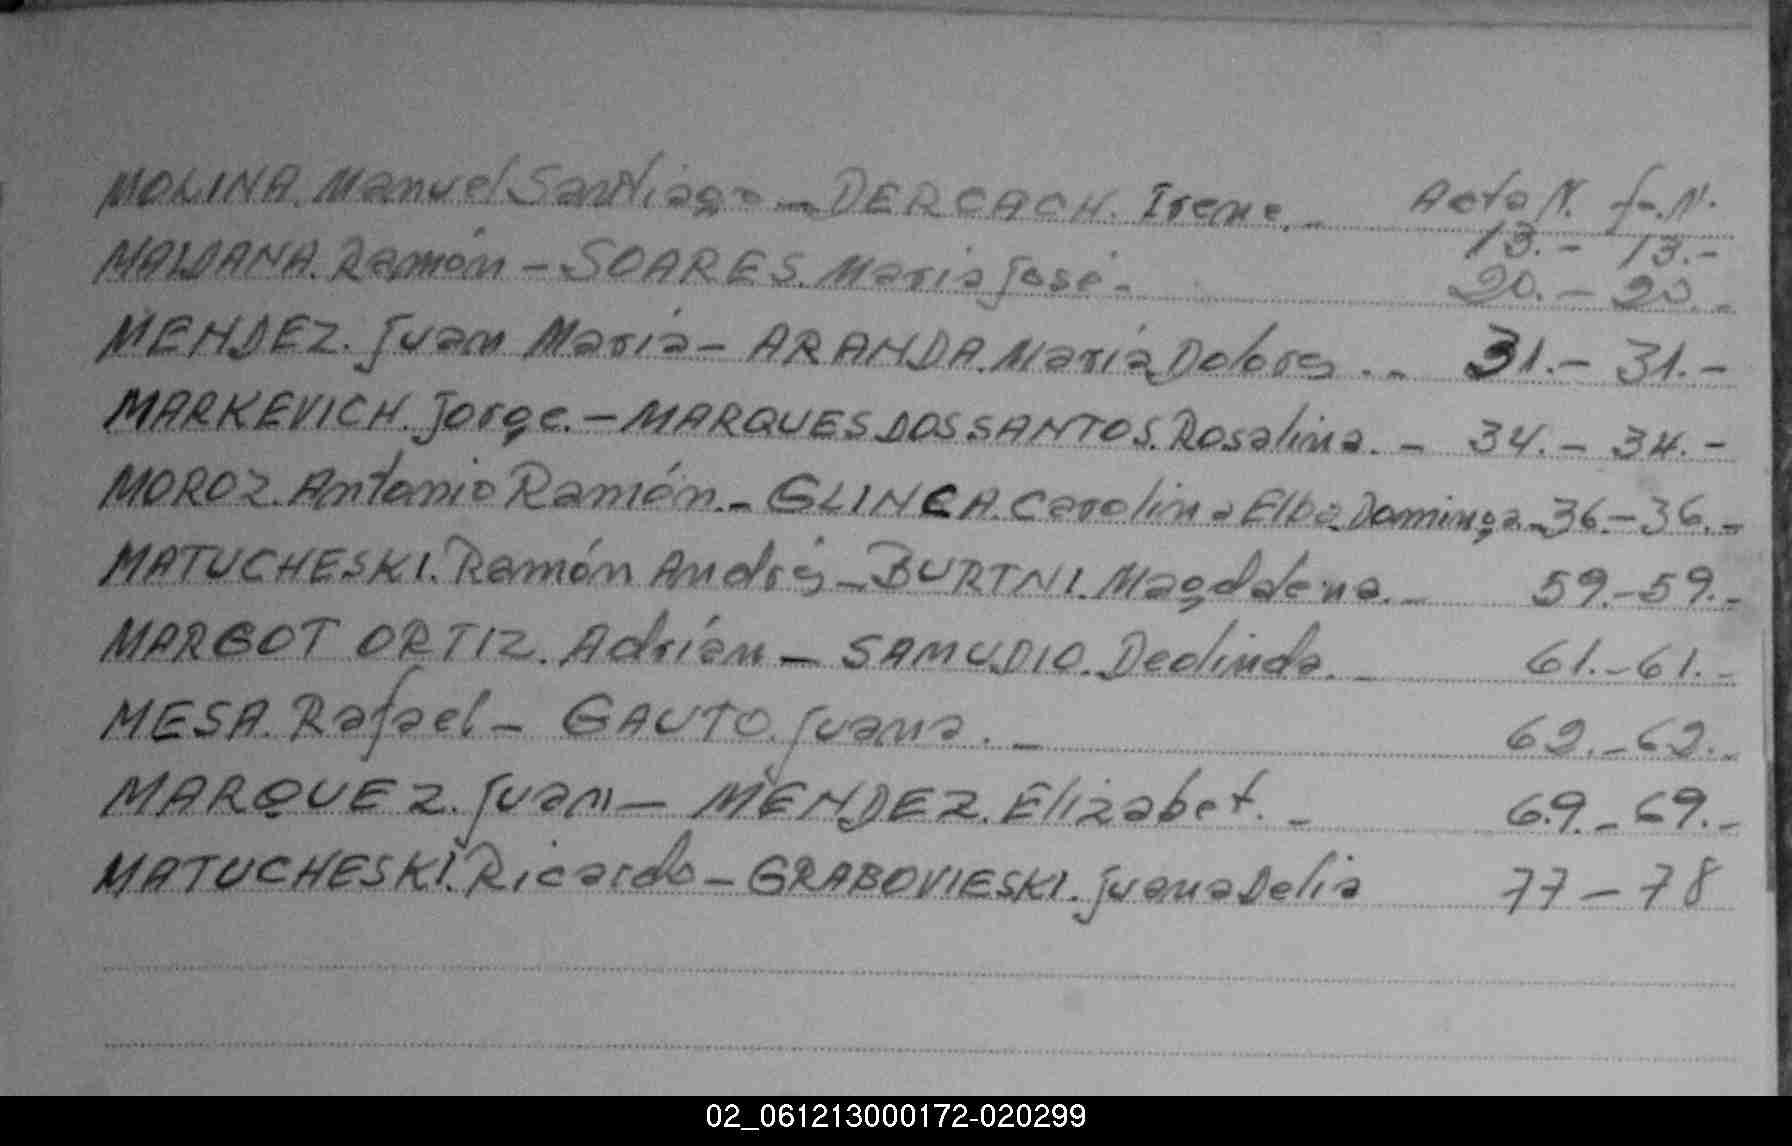 MOLINA. Manuel Santiago - DERCACH. Irene. - Acta N. fo. N.
13. - 13. -
MALDANA. Ramón - SOARES. Maria José - 20. - 20. -
MENDEZ. Juan María - ARANDA. María Dolores .. - 31. - 31. -
MARKEVICH. Jorge. - MARQUES DOS SANTOS. Rosalina. - 34. - 34. -
MOROZ. Antonio Ramón. - GLINCA. Carolina Elba Dominga. - 36. - 36. -
MATUCHESKI. Ramón Andrés - BURTNI. Magdalena. - 59. - 59. -
MARGOT ORTIZ. Adrián - SAMUDIO. Deolinda. - 61. - 61. -
MESA. Rafael - GAUTO. Juana. - 62. - 62. -
MARQUEZ. Juan - MENDEZ. Elizabet. - 69. - 69. -
MATUCHESKI. Ricardo - GRABOVIESKI. Juana Delia 77 - 78
02_061213000172-020299